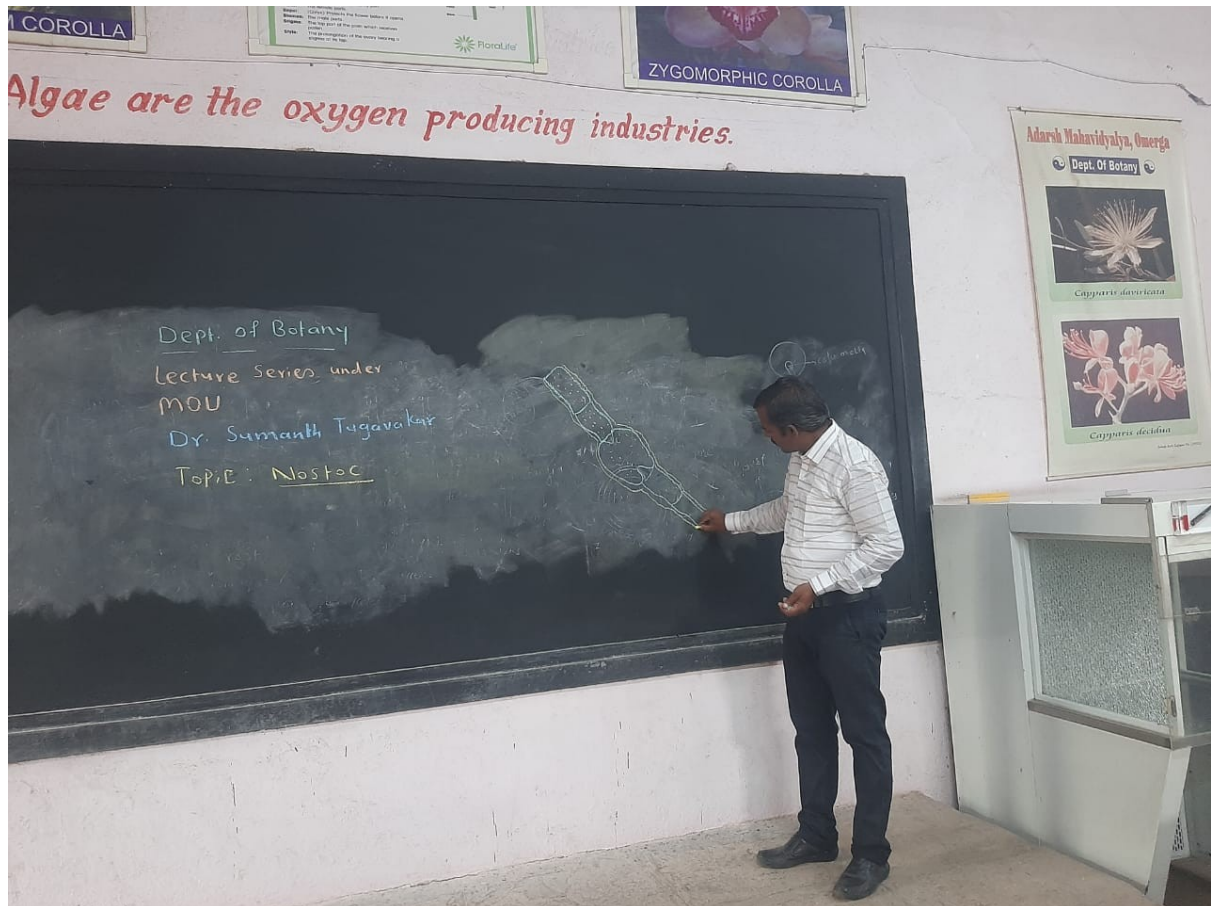 M COROLLA
The prolongation of the ovary bearing a
FloraLife
ZYGOMORPHIC COROLLA
Algae are the oxygen producing industries.
Adarsh Mahavidyalya, Omerga
Dept. Of Botany
Capparis daviricata
Capparis decidua
Dept. of Botany
Lecture Series under
MOU
Dr. Sumanth Tugavakar
Topic: Nostoc
columella